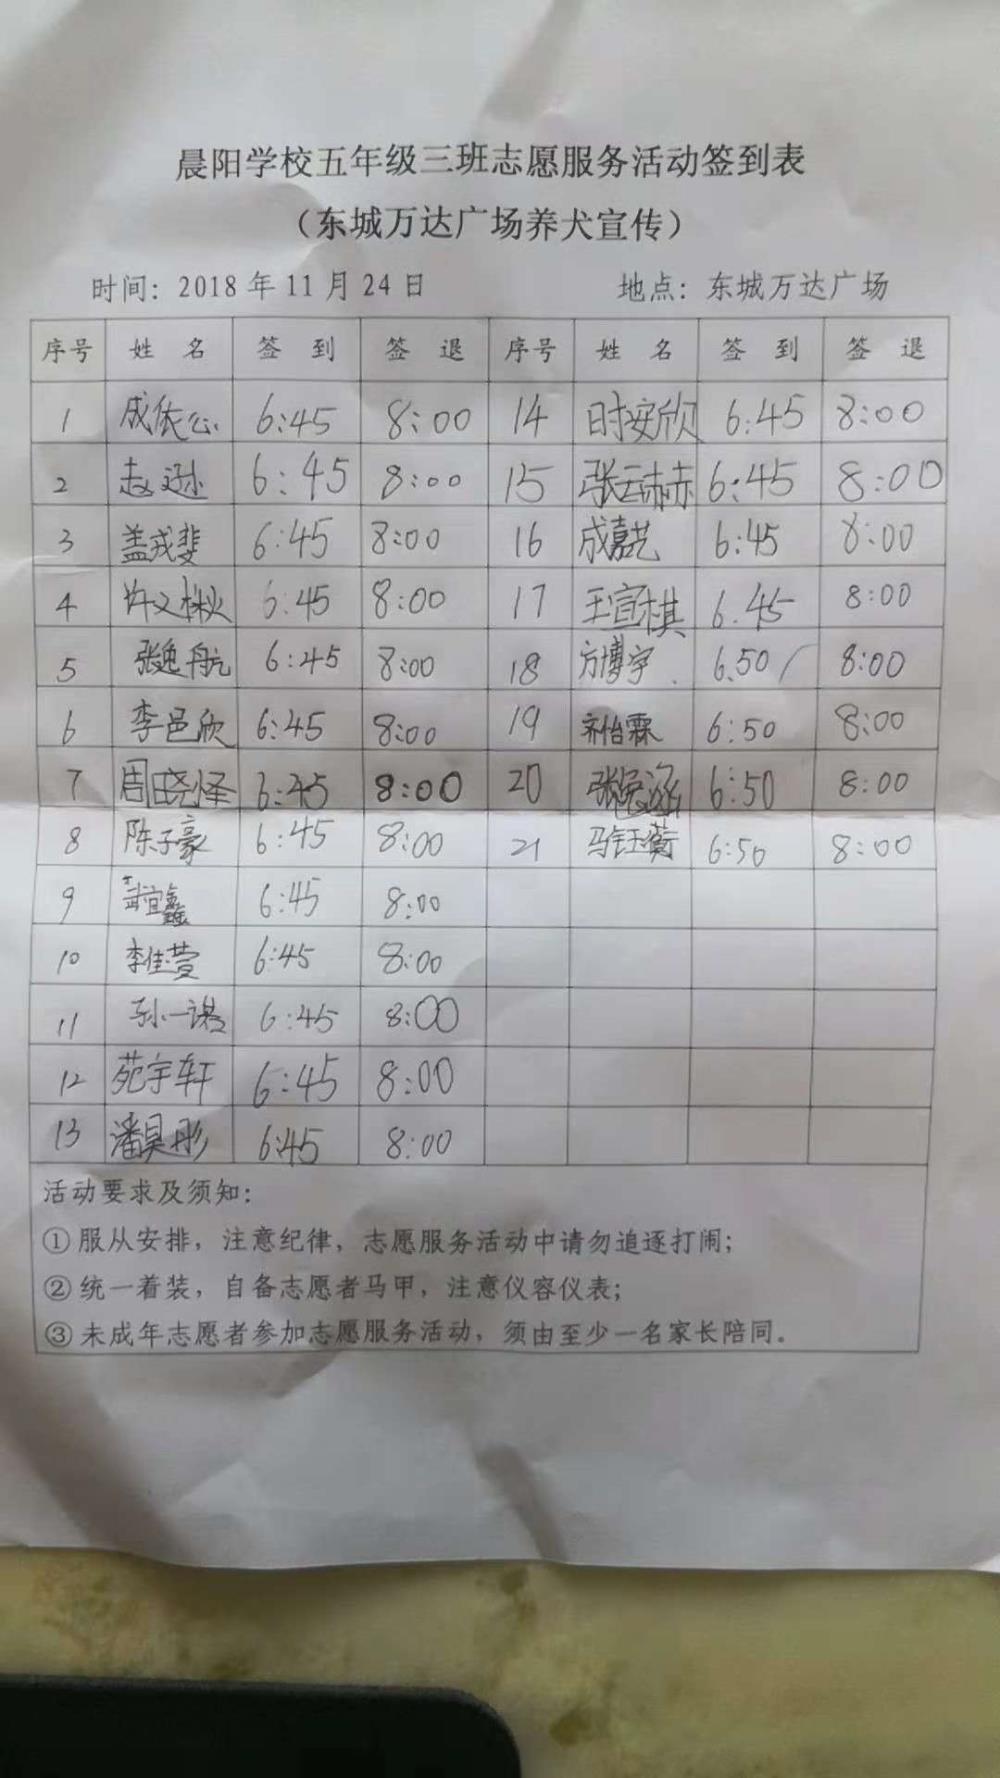 晨阳学校五年级三班志愿服务活动签到表
（东城万达广场养犬宣传）
时间：2018年11月24日 地点：东城万达广场
序号 姓名 签到 签退 序号 姓名 签到 签退
1 成依公 6:45 8:00 14 时安欣 6:45 8:00
2 赵逊 6:45 8:00 15 张云赫 6:45 8:00
3 盖戎斐 6:45 8:00 16 成嘉艺 6:45 8:00
4 许文楸 6:45 8:00 17 王宣棋 6.45 8:00
5 张逸航 6:45 8:00 18 方博宇 6.50 8:00
6 李邑欣 6:45 8:00 19 齐怡霖 6:50 8:00
7 周晓怿 6:45 8:00 20 张 6:50 8:00
8 陈子豪 6:45 8:00 21 马钰蘅 6:50 8:00
9 武宜鑫 6:45 8:00
10 李佳萱 6:45 8:00
11 孙一诺 6:45 8:00
12 苑宇轩 6:45 8:00
13 潘昊彤 6:45 8:00
活动要求及须知：
①服从安排，注意纪律，志愿服务活动中请勿追逐打闹；
②统一着装，自备志愿者马甲，注意仪容仪表；
③未成年志愿者参加志愿服务活动，须由至少一名家长陪同。